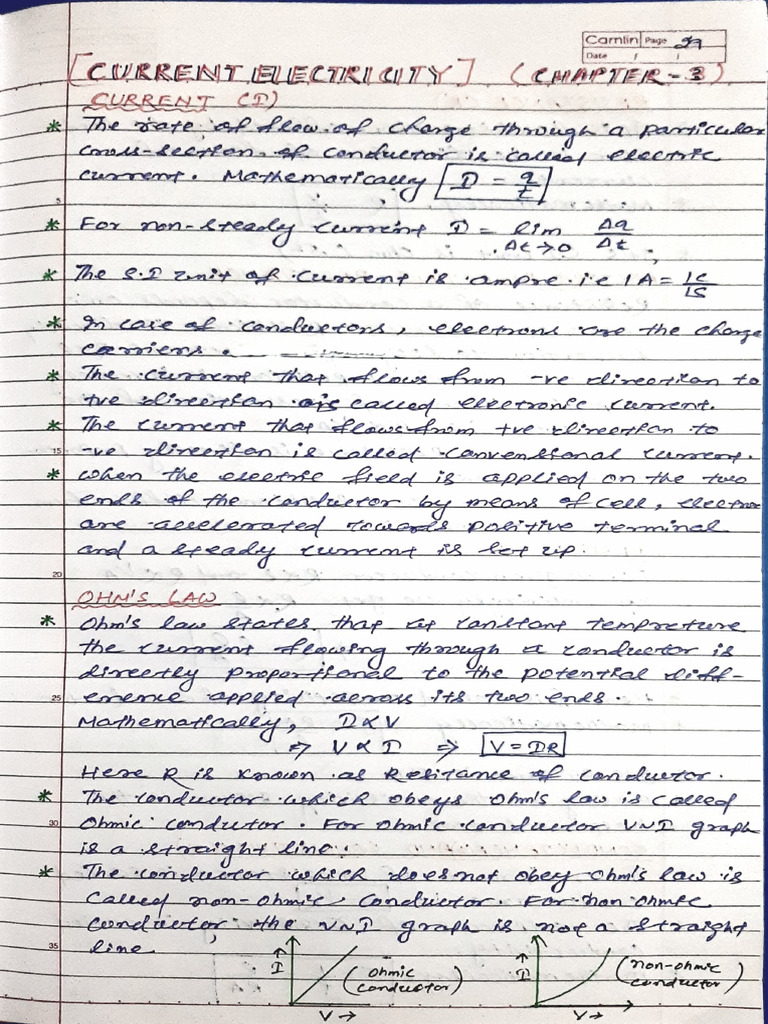 Camlin Page 29
Date / /
[CURRENT ELECTRICITY] (CHAPTER-3)
CURRENT (I)
* The rate of flow of charge through a particular
cross-section of conductor is called electric
current. Mathematically I = q/t
* For non-steady current I = lim Δt→0 Δq/Δt
* The S.I unit of current is ampre i.e 1A = 1C/1S
* In case of conductors, electrons are the charge
carriers.
* The current that flows from -ve direction to
+ve direction is called electronic current.
* The current that flows from +ve direction to
15 -ve direction is called conventional current.
* When the electric field is applied on the two
ends of the conductor by means of cell, electrons
are accelerated towards positive terminal
and a steady current is set up.
20
OHM'S LAW
* Ohm's law states that at constant tempreture
the current flowing through a conductor is
directly proportional to the potential diff-
25 erence applied across its two ends.
Mathematically, I ∝ V
⇒ V ∝ I ⇒ V = IR
Here R is known as Resitance of conductor.
* The conductor which obeys Ohm's law is called
30 Ohmic conductor. For ohmic conductor V~I graph
is a straight line.
* The conductor which does not obey Ohm's law is
called non-ohmic conductor. For non ohmic
conductor the V~I graph is not a straight
35 line.
I → (ohmic conductor) V →
I → (non-ohmic conductor) V →